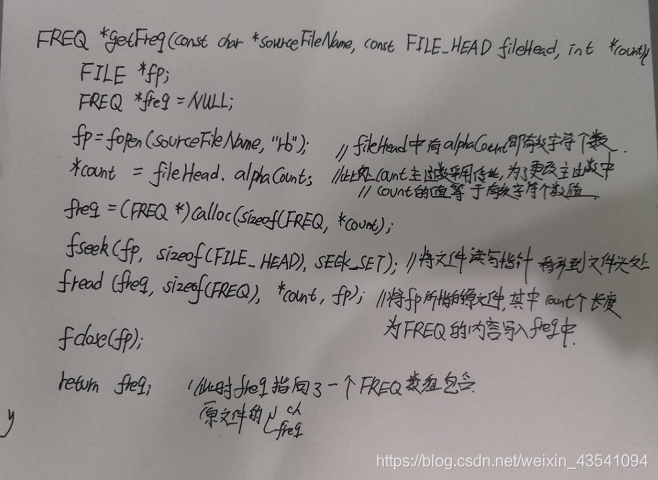 FREQ *getFreq(const char *sourceFileName, const FILE_HEAD fileHead, int *count){
FILE *fp;
FREQ *freq = NULL;
fp=fopen(sourceFileName, "rb"); // fileHead中有alphaCount即有效字符个数.
*count = fileHead.alphaCount; //此处count主函数采用传址,为了更改主函数中
// count的值等于有效字符个数值
freq = (FREQ *)calloc(sizeof(FREQ, *count);
fseek(fp, sizeof(FILE_HEAD), SEEK_SET); //将文件读写指针移到文件头处
fread (freq, sizeof(FREQ), *count, fp); //将fp所指的原文件,其中count个长度
为FREQ的内容写入freq中.
fclose(fp);
return freq; //此时freq指向了一个FREQ数组包含
原文件的{ ch
freq
y
https://blog.csdn.net/weixin_43541094